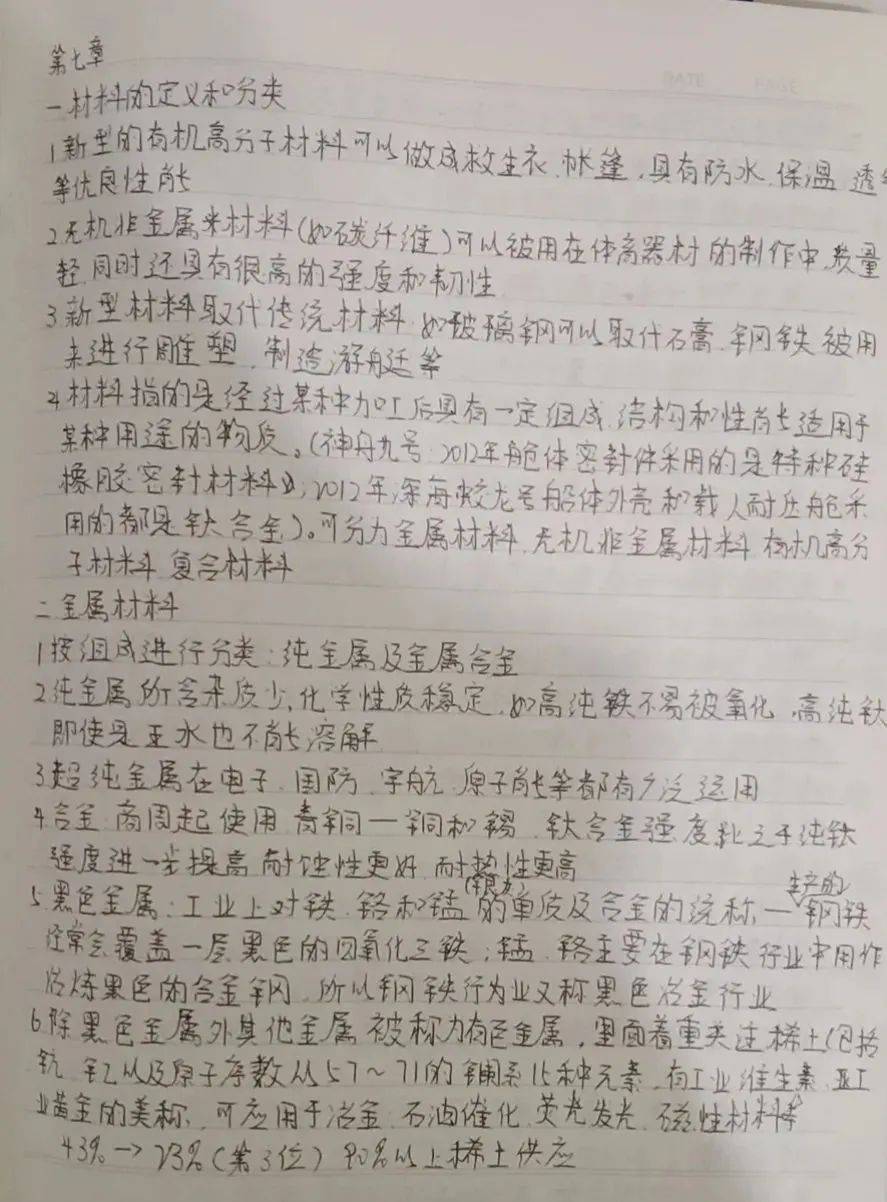 第七章
一 材料的定义和分类
1 新型的有机高分子材料可以做成救生衣、帐篷，具有防水、保温、透
等优良性能
2 无机非金属来材料（如碳纤维）可以被用在体育器材的制作中，质量
轻，同时还具有很高的强度和韧性
3 新型材料取代传统材料，如玻璃钢可以取代石膏、钢铁被用
来进行雕塑，制造游艇等
4 材料指的是经过某种加工后具有一定组成、结构和性能适用于
某种用途的物质。（神舟九号：2012年舱体密封件采用的是特种硅
橡胶密封材料；2012年深海蛟龙号船体外壳和载人耐压舱采
用的都是钛合金）。可分为金属材料、无机非金属材料、有机高分
子材料、复合材料
二 金属材料
1 按组成进行分类：纯金属及金属合金
2 纯金属所含杂质少，化学性质稳定，如高纯铁不易被氧化，高纯钛
即使是王水也不能溶解
3 超纯金属在电子、国防、宇航、原子能等都有广泛运用
4 合金：商周起使用青铜—铜和锡，钛合金强度比之于纯钛
强度进一步提高，耐蚀性更好，耐热性更高
5 黑色金属：工业上对铁、铬和锰的单质及合金的统称—生产的钢铁
经常会覆盖一层黑色的四氧化三铁；锰、铬主要在钢铁行业中用作
冶炼黑色的合金钢，所以钢铁行为业又称黑色冶金行业
6 除黑色金属外其他金属被称为有色金属，里面着重关注稀土（包括
钪、钇以及原子序数从57～71的镧系15种元素，有工业维生素、工
业黄金的美称，可应用于冶金、石油催化、荧光发光、磁性材料等
43%→23%（第3位）90%以上稀土供应